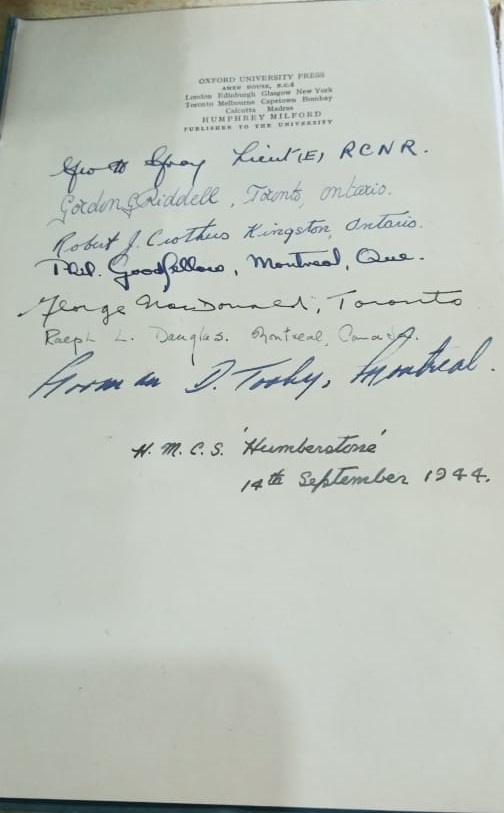 OXFORD UNIVERSITY PRESS
AMEN HOUSE, E.C.4
London Edinburgh Glasgow New York
Toronto Melbourne Capetown Bombay
Calcutta Madras
HUMPHREY MILFORD
PUBLISHER TO THE UNIVERSITY
Geo Spray Lieut(E) RCNR.
Gordon Riddell, Toronto, Ontario.
Robert J. Crothers Kingston, Ontario.
Phil. Goodfellow, Montreal, Que.
George MacDonald, Toronto
Ralph L. Douglas. Montreal, Canada.
Norman D. Tooby, Montreal.
H. M. C. S. 'Humberstone'
14th September 1944.